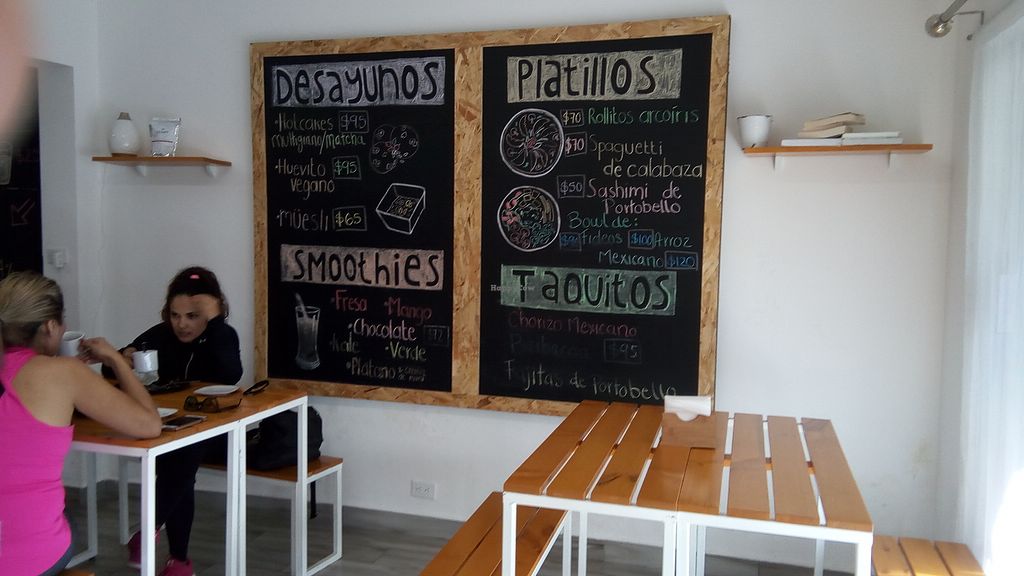 Desayunos
•Hotcakes $95
multigrano/matcha
•Huevito $95
vegano
•Müesli $65
SMOOTHIES
•Fresa •Mango
•Chocolate
•Kale •Verde
•Platano
Platillos
$70 Rollitos arcoíris
$70 Spaguetti
de calabaza
$50 Sashimi de
Portobello
Bowl de:
Fideos $100 Arroz
Mexicano $120
TAQUITOS
Chorizo Mexicano
Barbacoa $95
Fajitas de Portobello
HappyCow